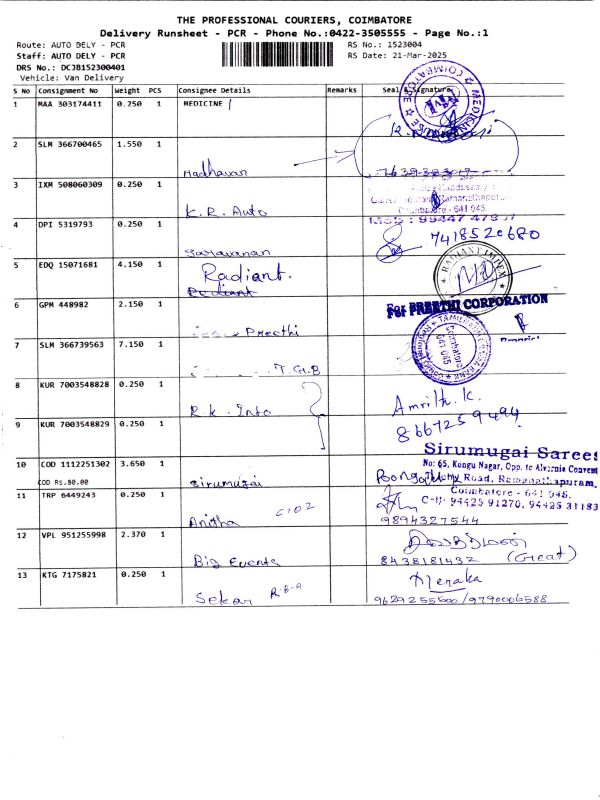 THE PROFESSIONAL COURIERS, COIMBATORE
Delivery Runsheet - PCR - Phone No.:0422-3505555 - Page No.:1
Route: AUTO DELY - PCR RS No.: 1523004
Staff: AUTO DELY - PCR RS Date: 21-Mar-2025
DRS No.: DCJB152300401
Vehicle: Van Delivery
S No Consignment No Weight PCS Consignee Details Remarks Seal & Signature
1 MAA 303174411 0.250 1 MEDICINE
2 SLM 366700465 1.550 1
Madhavan
3 IXM 508060309 0.250 1
K.R. Auto
Coimbatore - 641 045.
4 DPI 5319793 0.250 1
Saravanan 7418520680
5 EDQ 15071681 4.150 1 Radiant.
Radiant
RADIANT IMPEX
6 GPM 448982 2.150 1 For PREETHI CORPORATION
Preethi
7 SLM 366739563 7.150 1
T.G.B
Coimbatore
641 045
8 KUR 7003548828 0.250 1
R.K. Info Amrith.K.
8667259494
9 KUR 7003548829 0.250 1
Sirumugai Sarees
10 COD 1112251302 3.650 1 No: 65, Kongu Nagar, Opp. to Alvernia Convent
COD Rs.80.00 Sirumugai Road, Ramanathapuram,
11 TRP 6449243 0.250 1 Coimbatore - 641 045.
Cell: 94425 91270, 94425 31183
Anitha C102 9894327544
12 VPL 951255998 2.370 1
Big Events 8438181432 (Great)
13 KTG 7175821 0.250 1 Menaka
Sekar R-B-A 9629255500/9790006588